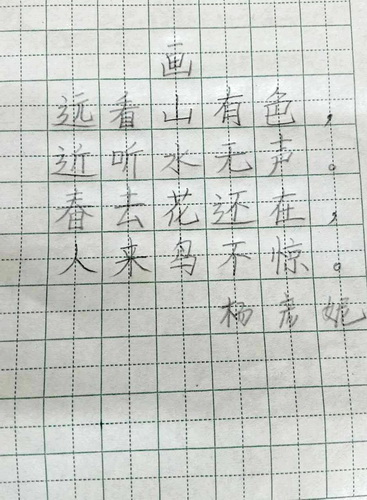 画
远看山有色，
近听水无声。
春去花还在，
人来鸟不惊。
杨彦妮